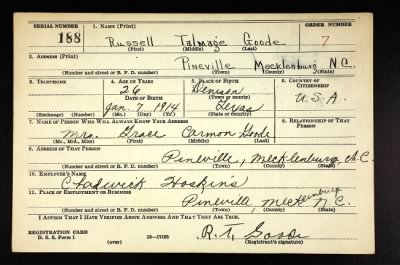 SERIAL NUMBER 1. NAME (Print) ORDER NUMBER
188 Russell Talmage Goode 7
(First) (Middle) (Last)
2. ADDRESS (Print)
Pineville Mecklenburg N.C.
(Number and street or R. F. D. number) (Town) (County) (State)
3. TELEPHONE 4. AGE IN YEARS 5. PLACE OF BIRTH 6. COUNTRY OF CITIZENSHIP
26 Denison
DATE OF BIRTH (Town or county)
Jan. 7 1914 Texas U.S.A.
(Exchange) (Number) (Mo.) (Day) (Yr.) (State or country)
7. NAME OF PERSON WHO WILL ALWAYS KNOW YOUR ADDRESS 8. RELATIONSHIP OF THAT PERSON
Mrs. Grace Carmon Goode
(Mr., Mrs., Miss) (First) (Middle) (Last)
9. ADDRESS OF THAT PERSON
Pineville, Mecklenburg, N.C.
(Number and street or R. F. D. number) (Town) (County) (State)
10. EMPLOYER'S NAME
Chadwick Hoskins
11. PLACE OF EMPLOYMENT OR BUSINESS
Pineville Mecklenburg N.C.
(Number and street or R. F. D. number) (Town) (County) (State)
I AFFIRM THAT I HAVE VERIFIED ABOVE ANSWERS AND THAT THEY ARE TRUE.
REGISTRATION CARD R.T. Goode
D. S. S. Form 1 (over) 16-17105 (Registrant's signature)